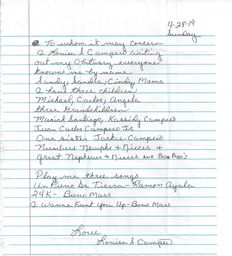 4-28-19
Sunday
To whom it may concern
I Louisa S Campero Writing
out my Obituary everyone
knows me by name
Sandy, Sandra, Cindy Mams
I have three children
Michael, Carlos, Angela
three Grandchildren
Mariah Santiago, Kassidy Campero
Juan Carlos Campero Jr
One sister Jackie Campero
Numbers Nephews & Nieces &
Great Nephews & Nieces AND Boo Boo's
Play me three songs
Un Puno De Tierra - Ramon Ayala
24K - Bruno Mars
I Wanna Funt You Up - Bruno Mars
Love,
Louisa S Campero